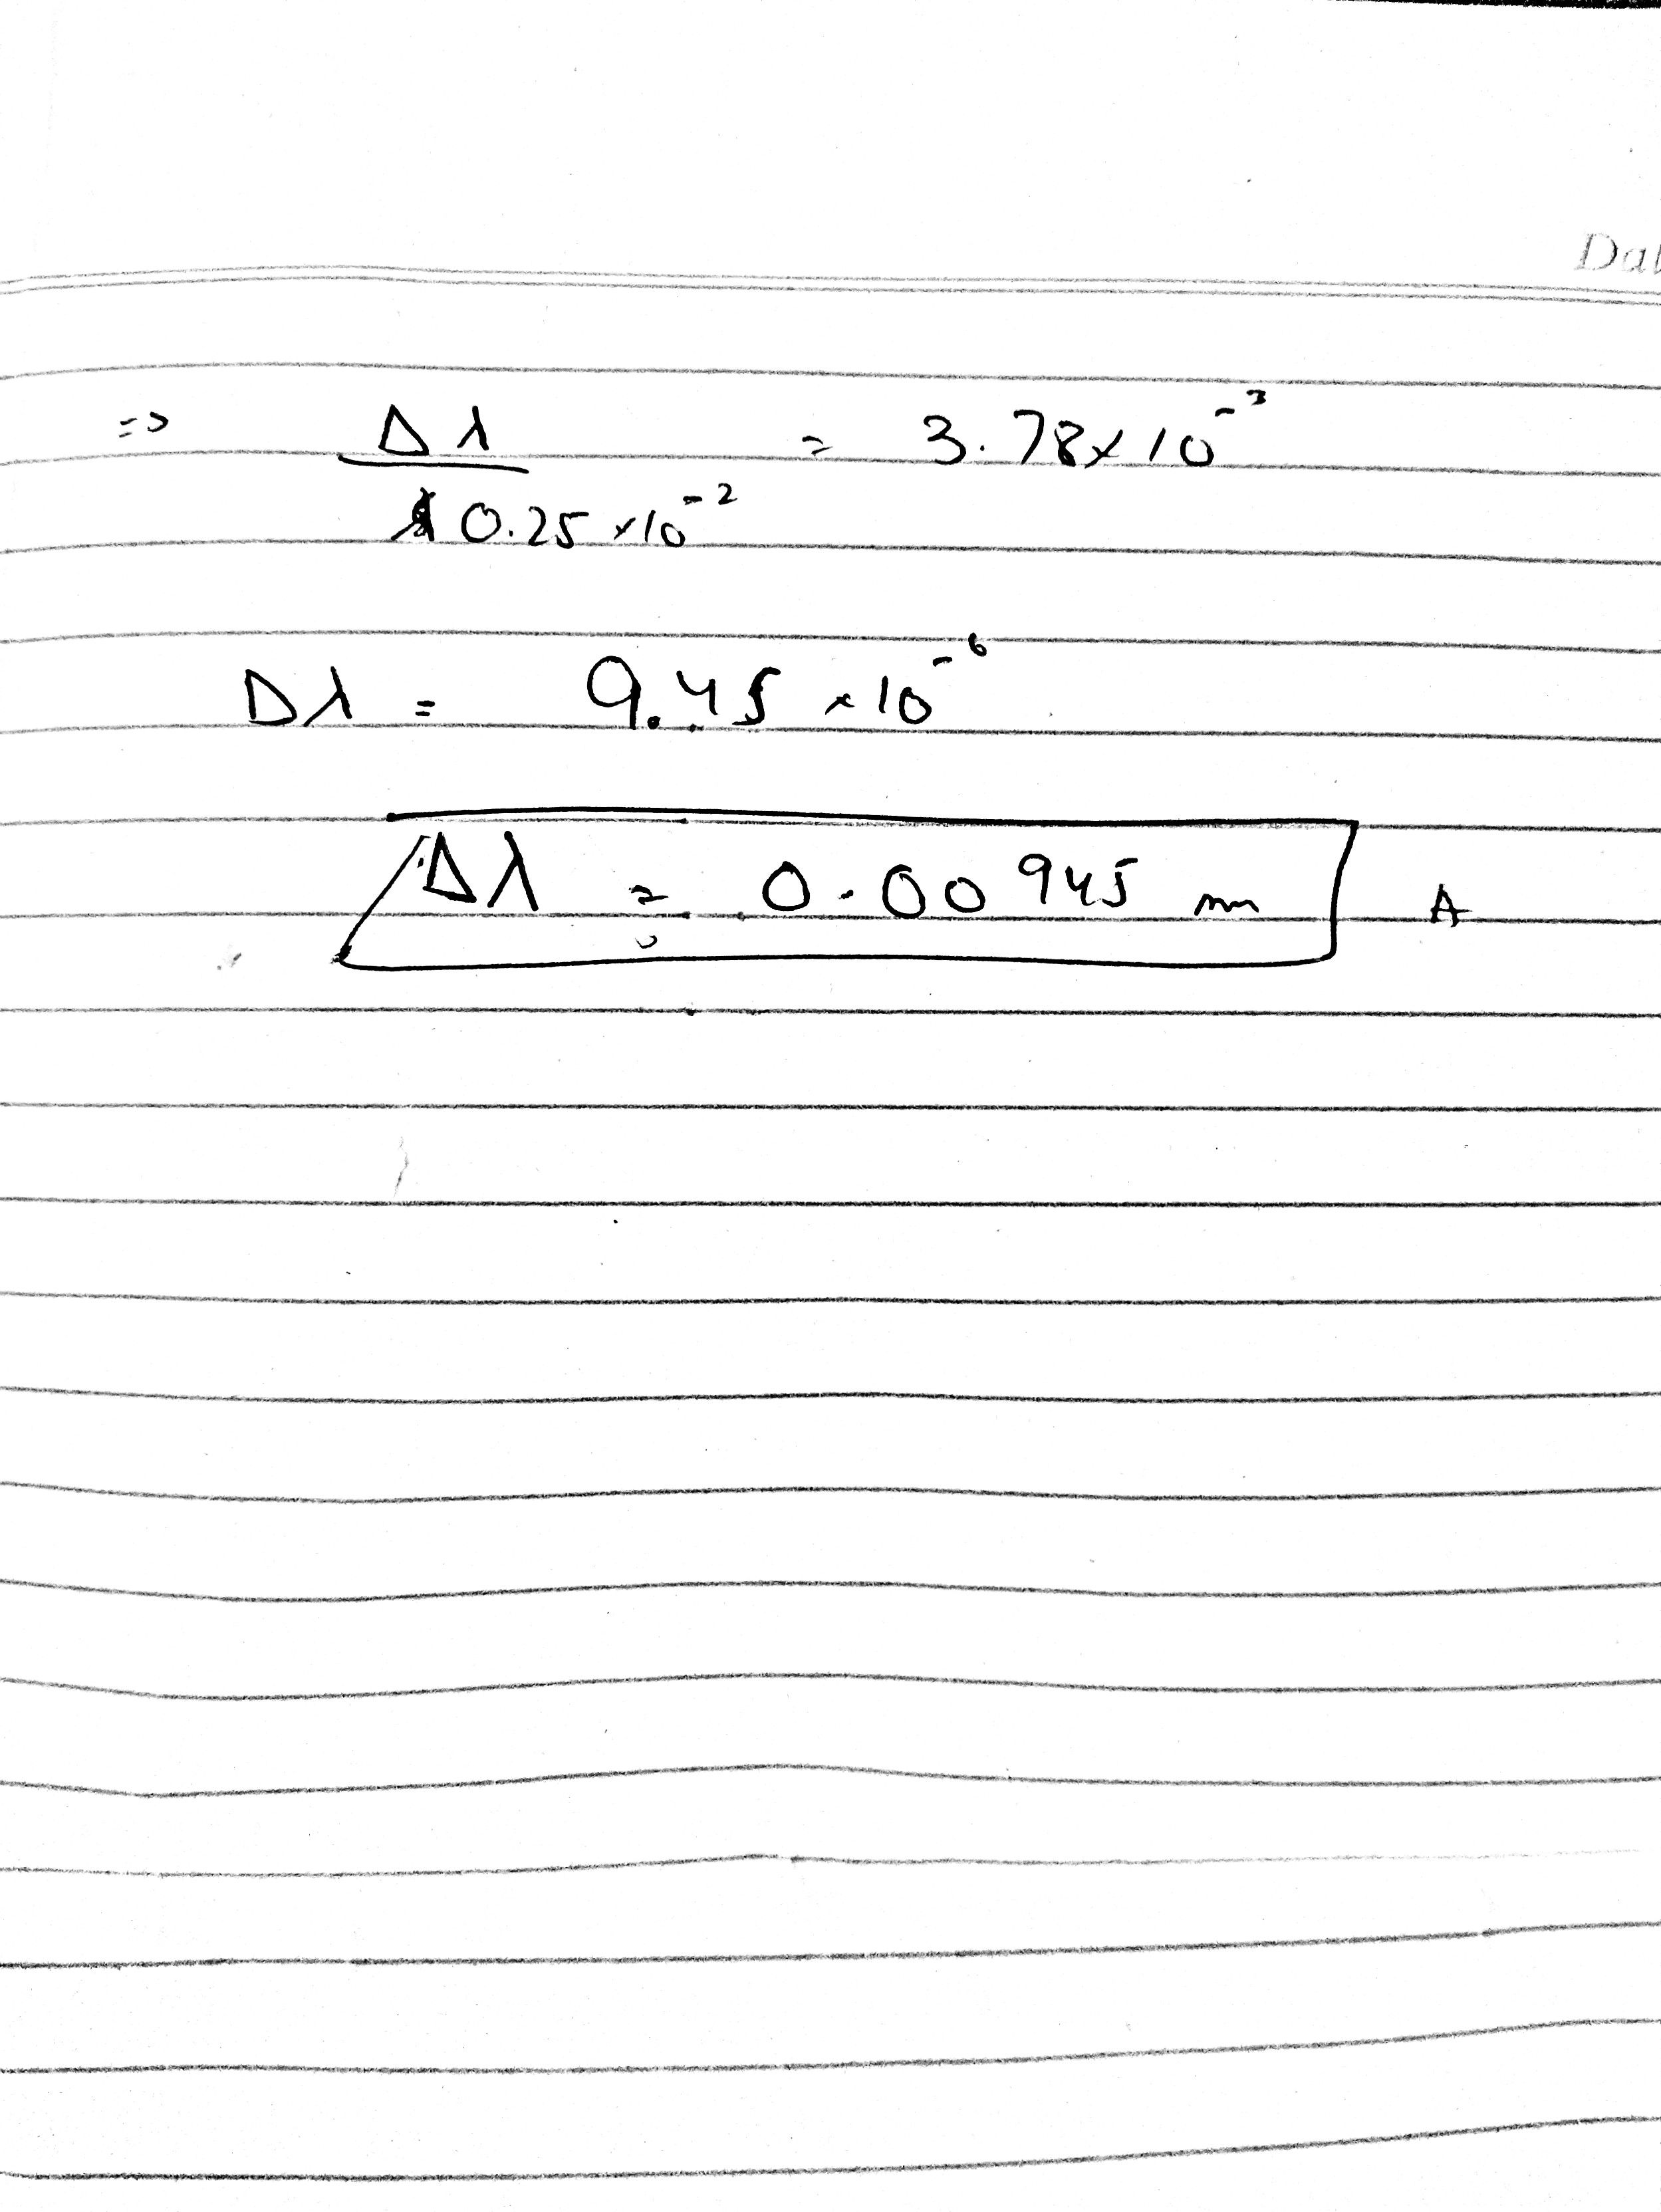 Dat
=> Δλ / 0.25 × 10⁻² = 3.78 × 10⁻³
Δλ = 9.45 × 10⁻⁶
Δλ = 0.00945 mm